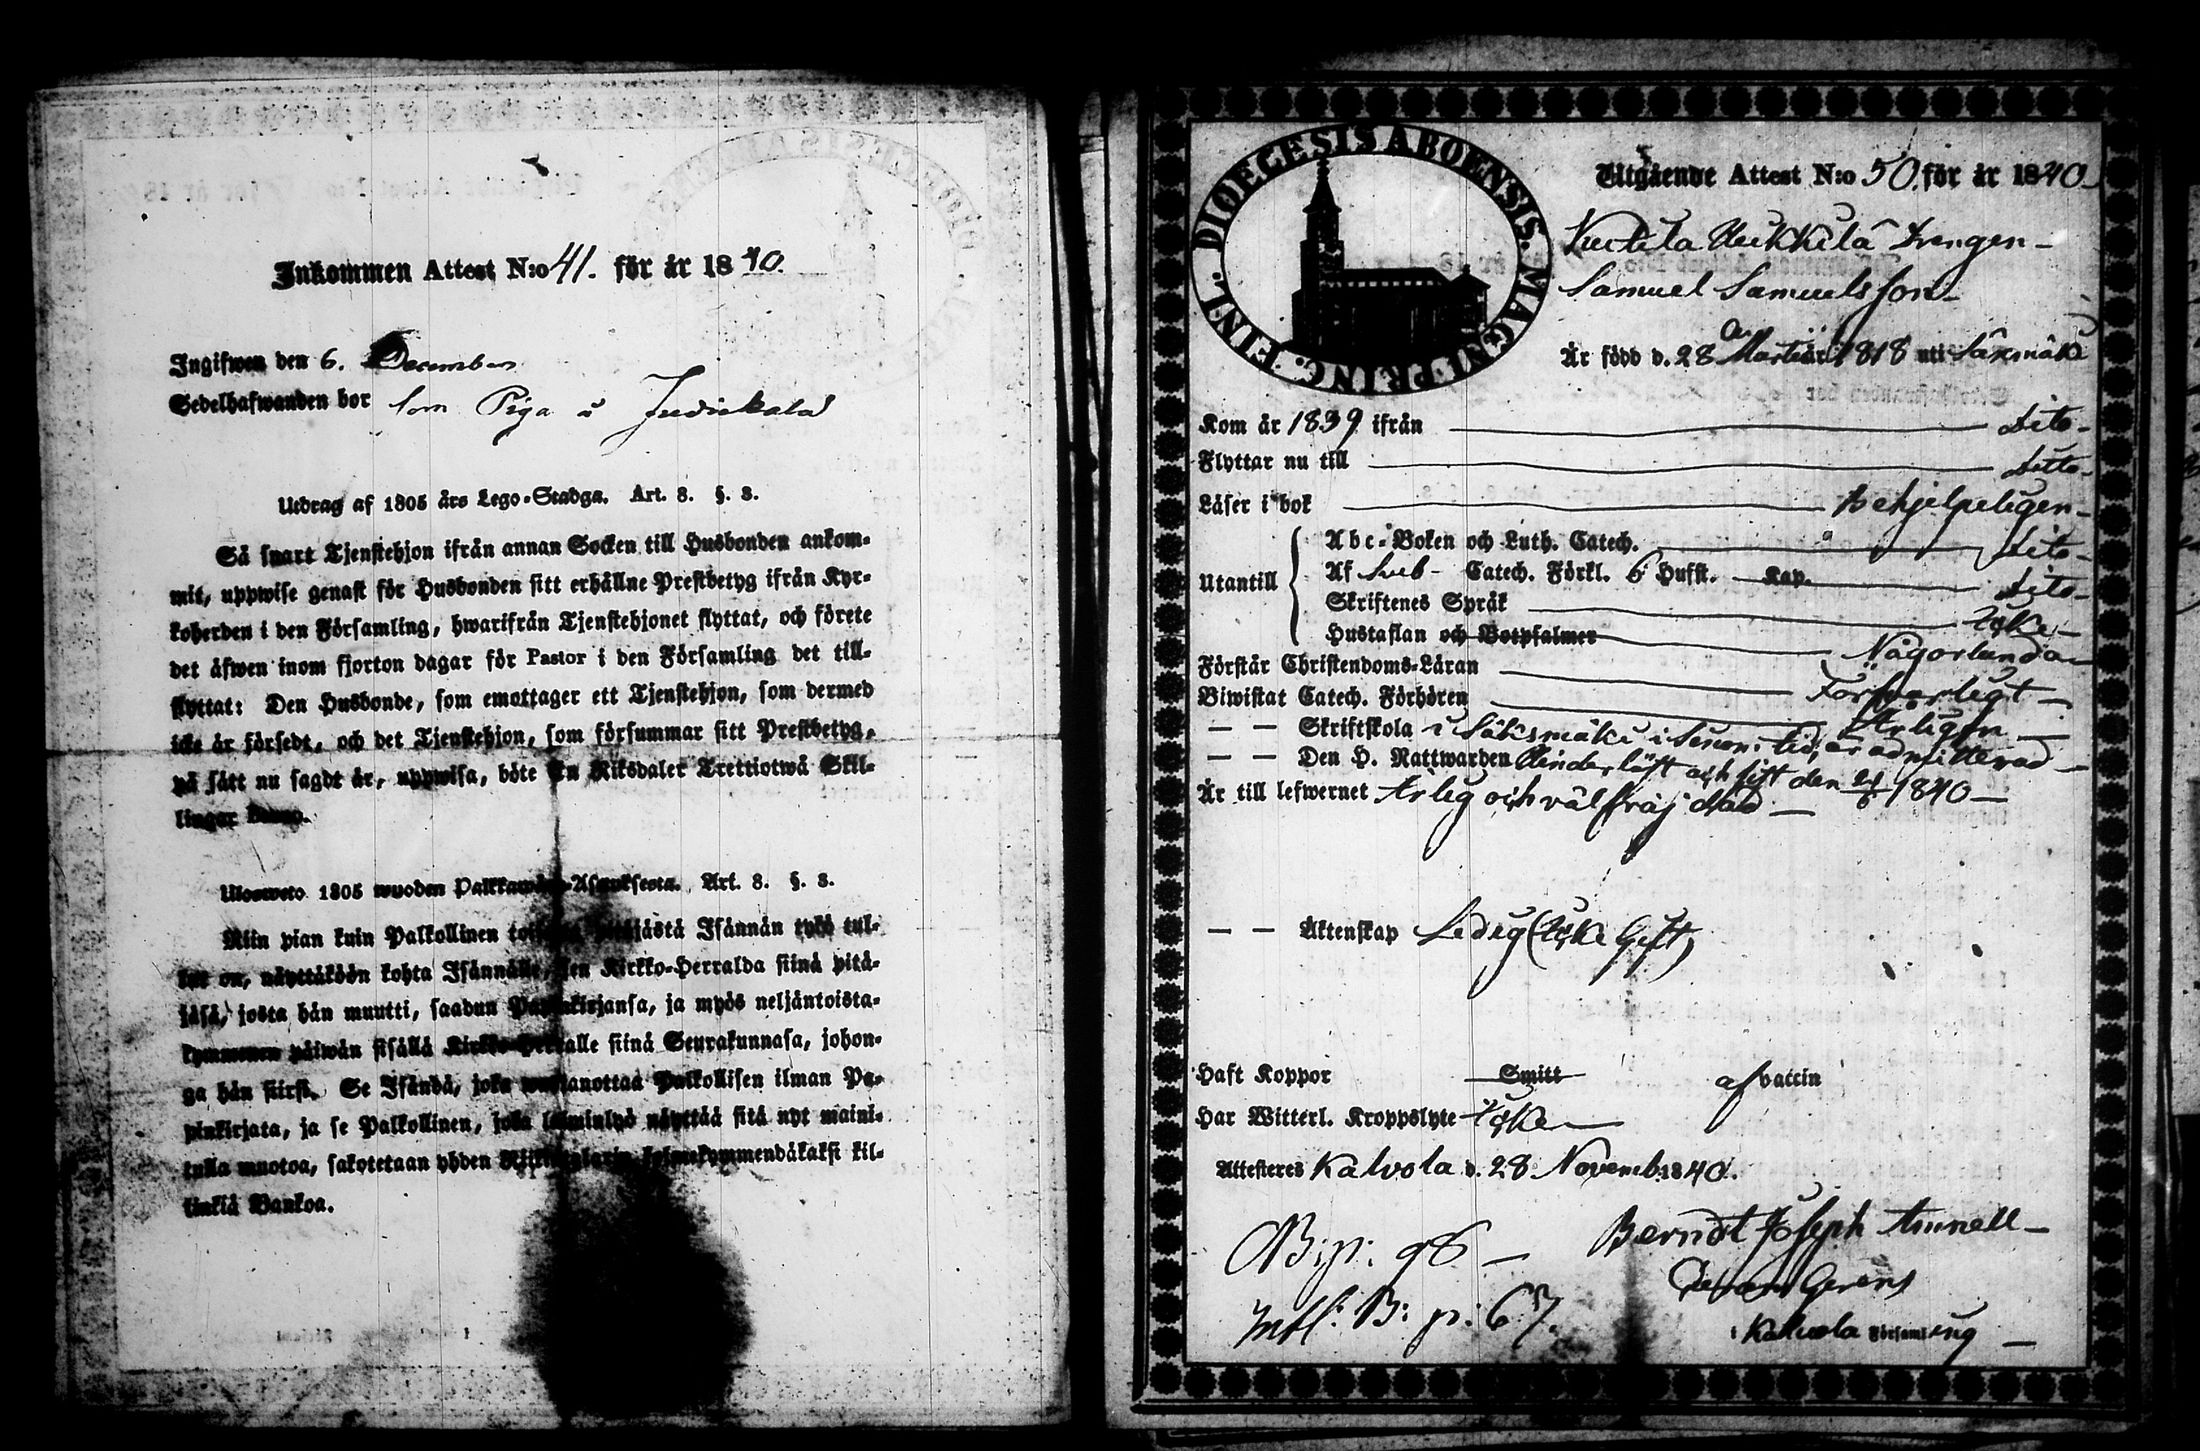 Inkommen Attest N:o 41. för år 1840.
Ingifwen den 6. December
Sedelhafwanden bor som Piga i Judickala
Utdrag af 1805 års Lego-Stadga. Art. 8. §. 3.
Så snart Tjenstehjon ifrån annan Socken till Husbonden ankom-
mit, uppwise genast för Husbonden sitt erhållne Prestbetyg ifrån Kyr-
koherden i den Församling, hwarifrån Tjenstehjonet flyttat, och förete
det äfwen inom fjorton dagar för Pastor i den Församling det till-
flyttat: Den Husbonde, som emottager ett Tjenstehjon, som dermed
icke är försedt, och det Tjenstehjon, som försummar sitt Prestbetyg,
på sätt nu sagdt är, uppwisa, böte En Riksdaler Trettiotwå Skil-
lingar Banco.
Ulosweto 1805 wuoden Palkkawäen-Asetuksesta. Art. 8. §. 3.
Niin pian kuin Palkollinen toisesta pitäjästä Isännän tykö tul-
lut on, näyttäköön kohta Isännälle, sen Kirkko-Herralda siinä pitä-
jäsä, josta hän muutti, saadun Papinkirjansa, ja myös neljäntoista-
kymmenen päiwän sisällä Kirkko-Herralle siinä Seurakunnasa, johon-
ga hän siirsi. Se Isändä, joka wastanottaa Palkollisen ilman Pa-
pinkirjata, ja se Palkollinen, joka laiminlyö näyttää sitä nyt maini-
tulla muotoa, sakotetaan yhden Riikintalarin kolmekymmendäkaksi kil-
linkiä Bankoa.
DIOECESIS ABOENSIS. MAGNI PRINC. FINL.
Utgående Attest N:o 50. för år 1840
Heikkilä Drengen
Samuel Samuelsson
Är född d. 28 Martii år 1818 uti Säxmäki
Kom år 1839 ifrån Dito
Flyttar nu till Ditto
Läser i bok Behjelpeligen
Utantill
Abc-Boken och Luth. Catech. Dito
Af Sveb- Catech. Förkl. 6 Hufst. Kap. Dito
Skriftenes Språk icke
Hustaflan och Botpsalmer Någorlunda
Förstår Christendoms-Läran Försvarligt
Biwistat Catech. Förhören Årligen
— — Skriftskola i Säksmäki i sinom tid, är admitterad
— — Den H. Nattwarden Hinderlöst och sist den 21/6 1840
Är till lefwernet Ärlig och välfräjdad
— — Äktenskap Ledig (icke Gift)
Haft Koppor Smitt af vaccin
Har Witterl. Kroppslyte icke
Attesteres Kalvola d. 28 Novemb. 1840.
B: p: 96
Berndt Joseph Amnell
Intl: B: p: 67.
i Kalvola Församling